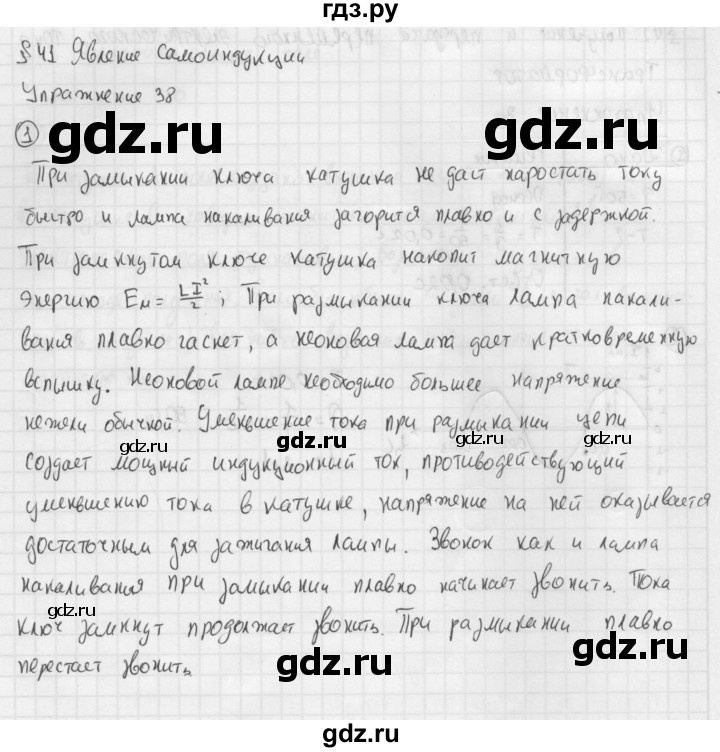 гдз.ру
§ 41 Явление самоиндукции
Упражнение 38
① gdz.ru gdz.ru
При замыкании ключа катушка не даст наростать току
быстро и лампа накаливания загорится плавно и с задержкой.
При замкнутом ключе катушка накопит магнитную
энергию Eм = LI²/2; При размыкании ключа лампа накали-
вания плавно гаснет, а неоновая лампа дает кратковременную
вспышку. Неоновой лампе необходимо большее напряжение
нежели обычной. Уменьшение тока при размыкании цепи
gdz.ru gdz.ru gdz.ru
создает мощный индукционный ток, противодействующий
уменьшению тока в катушке, напряжение на ней оказывается
достаточным для зажигания лампы. Звонок как и лампа
накаливания при замыкании плавно начинает звонить. Пока
gdz.ru gdz.ru
ключ замкнут продолжает звонить. При размыкании плавно
перестает звонить.
gdz.ru gdz.ru
gdz.ru